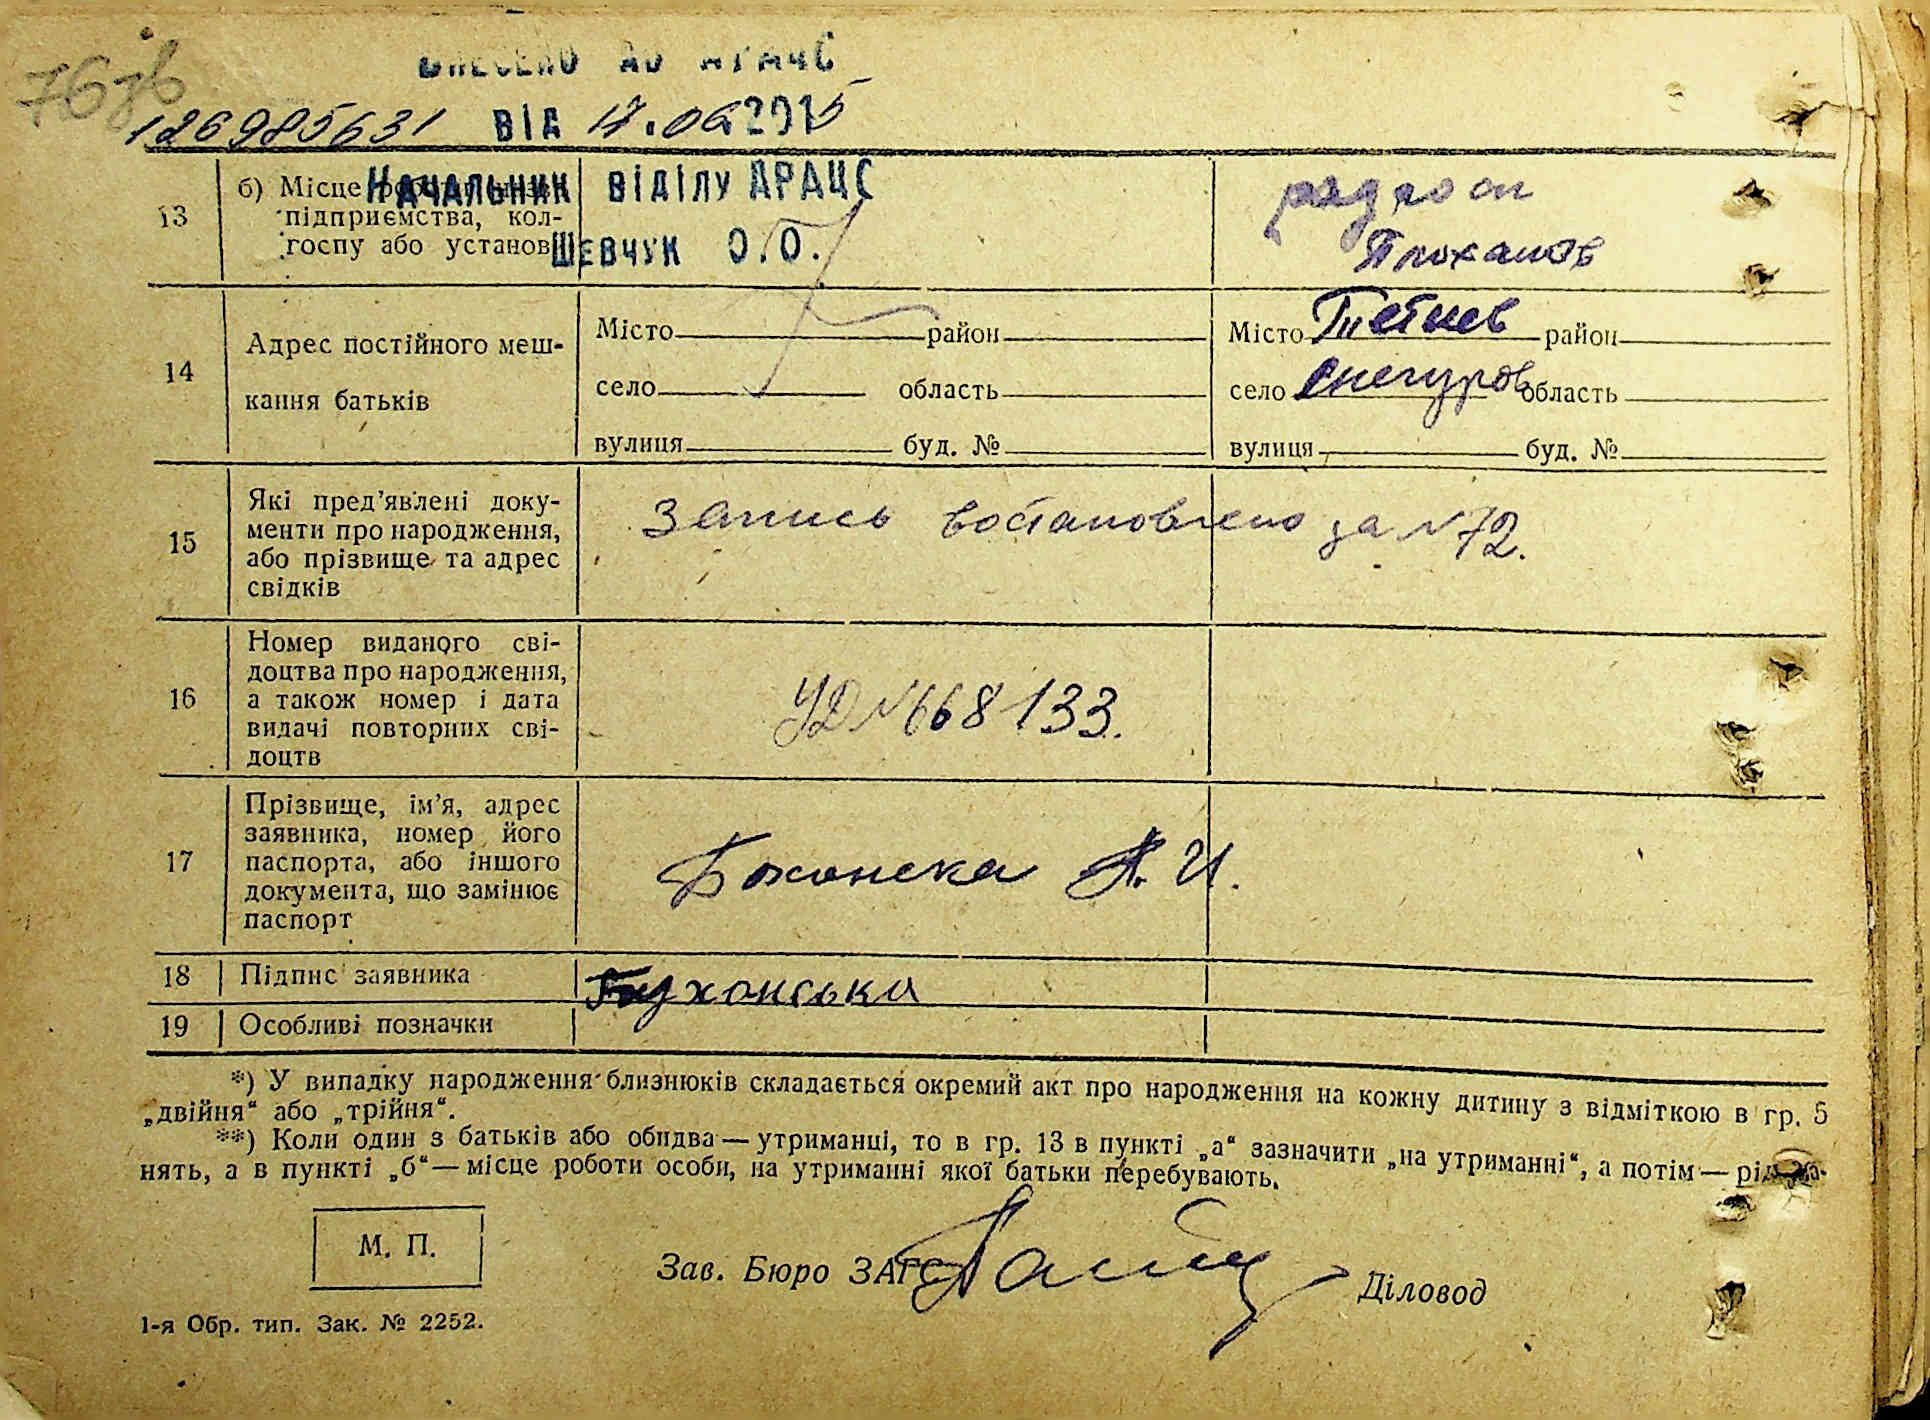 76зв
ВНЕСЕНО ДО АРАЦС
126985631 ВІД 17.06.2015
НАЧАЛЬНИК ВІДІЛУ АРАЦС
ШЕВЧУК О.О.
13 б) Місце
підприємства, кол-
госпу або установ
14 Адрес постійного меш-
кання батьків
Місто район
село область
вулиця буд. №
Місто район
село область
вулиця буд. №
15 Які пред’явлені доку-
менти про народження,
або прізвище та адрес
свідків
Запись востановлено за №72.
16 Номер виданого сві-
доцтва про народження,
а також номер і дата
видачі повторних сві-
доцтв
УД №668133.
17 Прізвище, ім’я, адрес
заявника, номер його
паспорта, або іншого
документа, що замінює
паспорт
А. И.
18 Підпис заявника
Бухонська
19 Особливі позначки
*) У випадку народження близнюків складається окремий акт про народження на кожну дитину з відміткою в гр. 5
„двійня“ або „трійня“.
**) Коли один з батьків або обидва — утриманці, то в гр. 13 в пункті „а“ зазначити „на утриманні“, а потім —
нять, а в пункті „б“ — місце роботи особи, на утриманні якої батьки перебувають.
М. П.
Зав. Бюро ЗАГС
Діловод
1-я Обр. тип. Зак. № 2252.